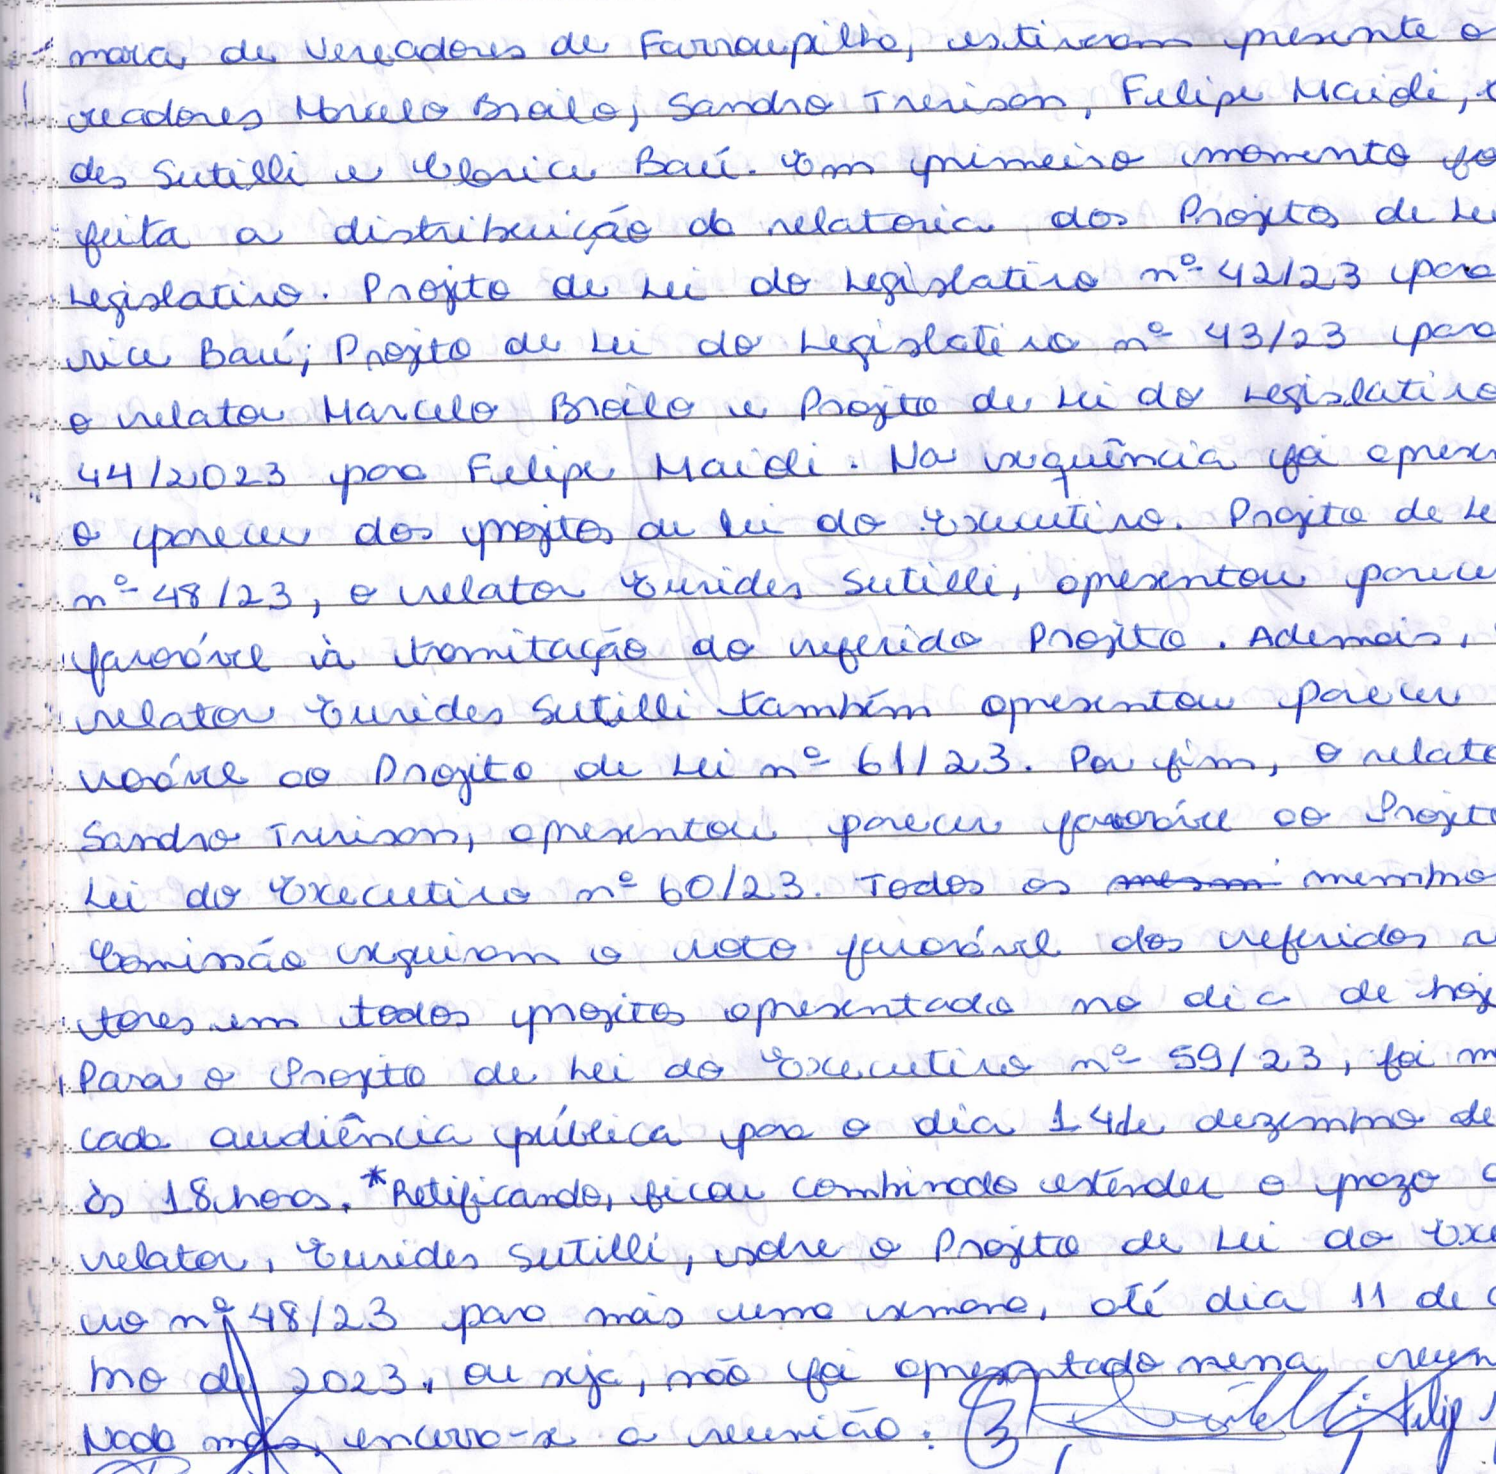 mara de Vereadores de Farroupilha, estiveram presente o
readores Marcelo Broilo, Sandro Trevison, Felipe Maioli,
des Sutilli e Clarice Baú. Em primeiro momento fo
feita a distribuição da relatoria dos Projetos de Le
Legislativo. Projeto de Lei do Legislativo nº 42/23 para
rice Baú; Projeto de Lei do Legislativo nº 43/23 para
o relator Marcelo Broilo e Projeto de Lei do Legislativo
44/2023 para Felipe Maioli. Na sequência foi apresen
o parecer dos projetos de lei do Executivo. Projeto de Le
nº 48/23, o relator Eurides Sutilli, apresentou parece
favorável à tramitação do referido Projeto. Ademais,
relator Eurides Sutilli também apresentou parecer
vorável ao Projeto de Lei nº 61/23. Por fim, o relato
Sandro Trevison, apresentou parecer favorável ao Projeto
Lei do Executivo nº 60/23. Todos os membro
Comissão seguiram o voto favorável dos referidos r
tores em todos projetos apresentado no dia de hoje
Para o Projeto de Lei do Executivo nº 59/23, foi m
cada audiência pública para o dia 14 de dezembro de
às 18 horas. *Retificando, ficou combinado estender o prazo
relator, Eurides Sutilli, sobre o Projeto de Lei do Exe
vo nº 48/23 para mais uma semana, até dia 11 de
bro de 2023, ou seja, não foi apresentado nessa
Nada mais, encerro-se a reunião.